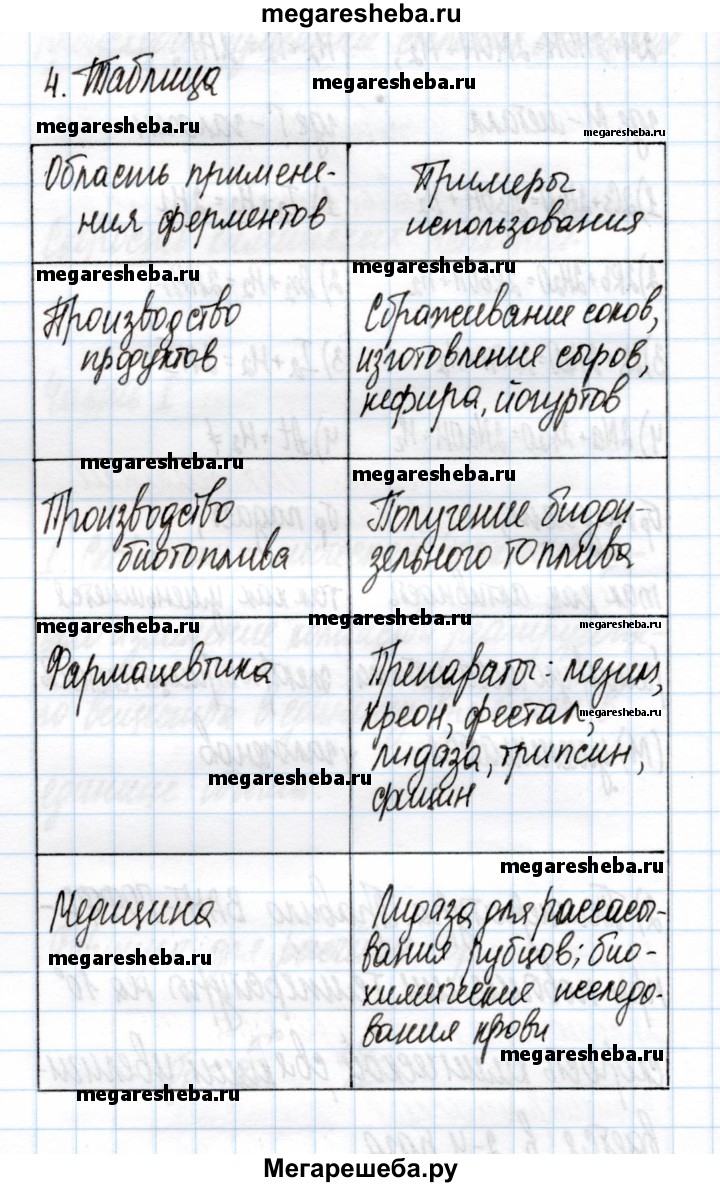 megaresheba.ru
4. Таблица
megaresheba.ru
megaresheba.ru
megaresheba.ru
Область примене-
ния ферментов
Примеры
использования
megaresheba.ru
megaresheba.ru
Производство
продуктов
Сбраживание соков,
изготовление сыров,
кефира, йогуртов
megaresheba.ru
megaresheba.ru
Производство
биотоплива
Получение биоди-
зельного топлива
megaresheba.ru
megaresheba.ru
megaresheba.ru
Фармацевтика
Препараты: мезим,
креон, фестал,
megaresheba.ru
лидаза, трипсин,
фицин
megaresheba.ru
megaresheba.ru
Медицина
Лидаза для рассасы-
вания рубцов; био-
химические исследо-
вания крови
megaresheba.ru
megaresheba.ru
megaresheba.ru
Мегарешеба.ру